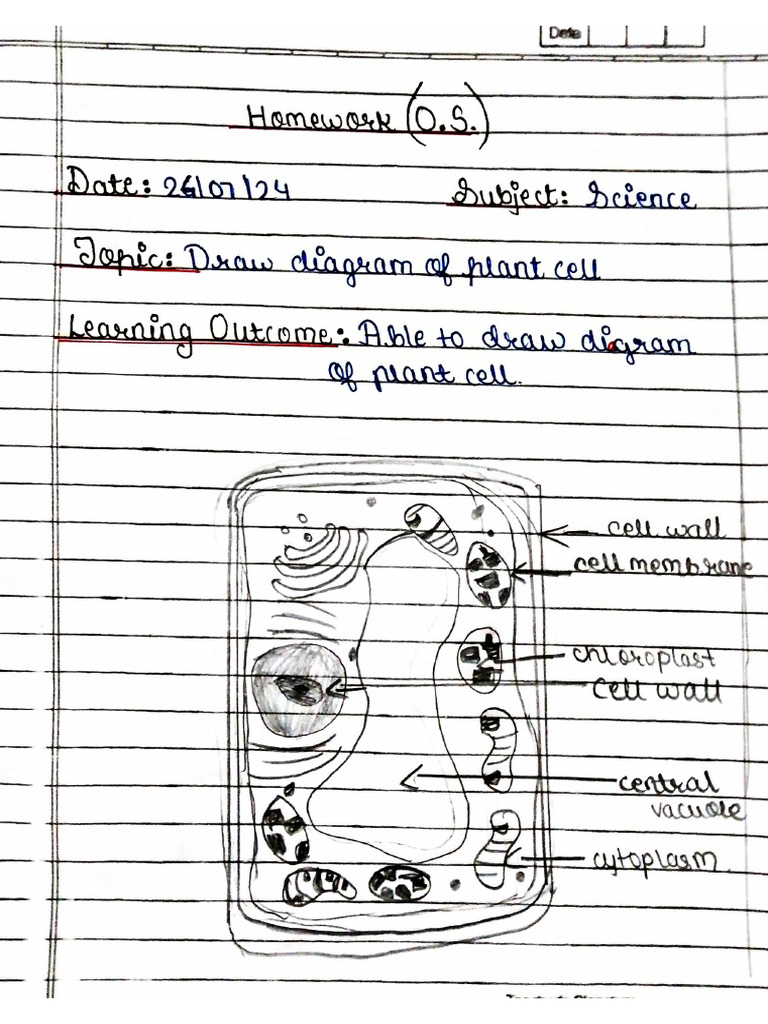 Date
Homework (O.S.)
Date: 26/07/24 Subject: Science
Topic: Draw diagram of plant cell
Learning Outcome: Able to draw diagram
of plant cell.
cell wall
cell membrane
chloroplast
cell wall
central
vacuole
cytoplasm.